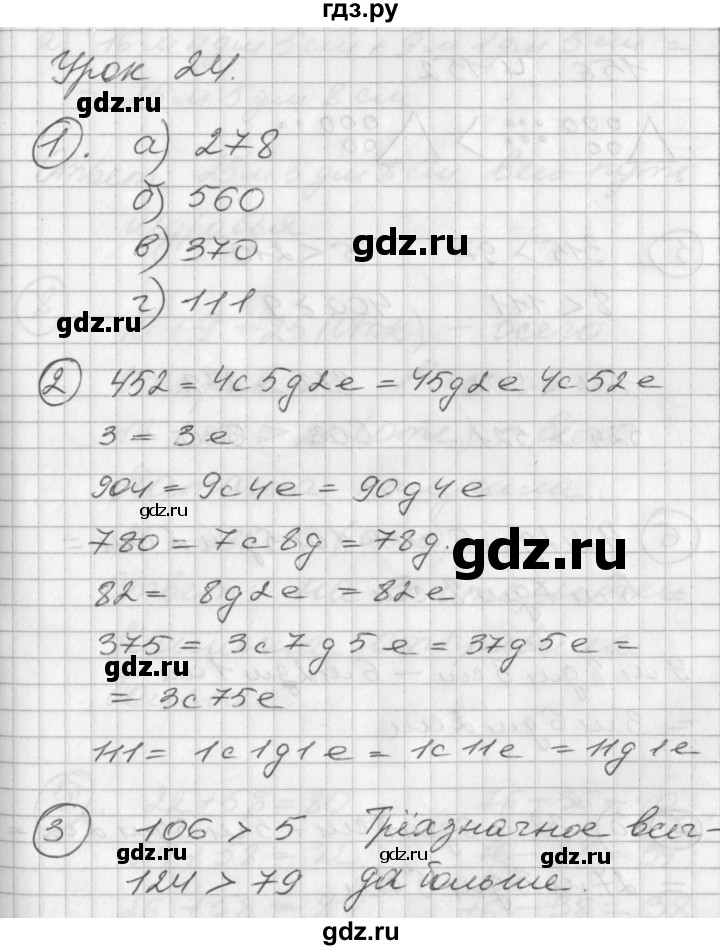 гдз.ру
Урок 24.
gdz.ru
1. а) 278
gdz.ru
б) 560
в) 370
gdz.ru
г) 111
gdz.ru
2 452 = 4с 5д 2е = 45д 2е 4с 52е
3 = 3е
904 = 9с 4е = 90д 4е
gdz.ru
780 = 7с 8д = 78д.
gdz.ru
82 = 8д 2е = 82е
375 = 3с 7д 5е = 37д 5е =
gdz.ru
= 3с 75е
111 = 1с 1д 1е = 1с 11е = 11д 1е
3 106 > 5 Трёхзначное всег-
gdz.ru gdz.ru
124 > 79 да больше.
gdz.ru